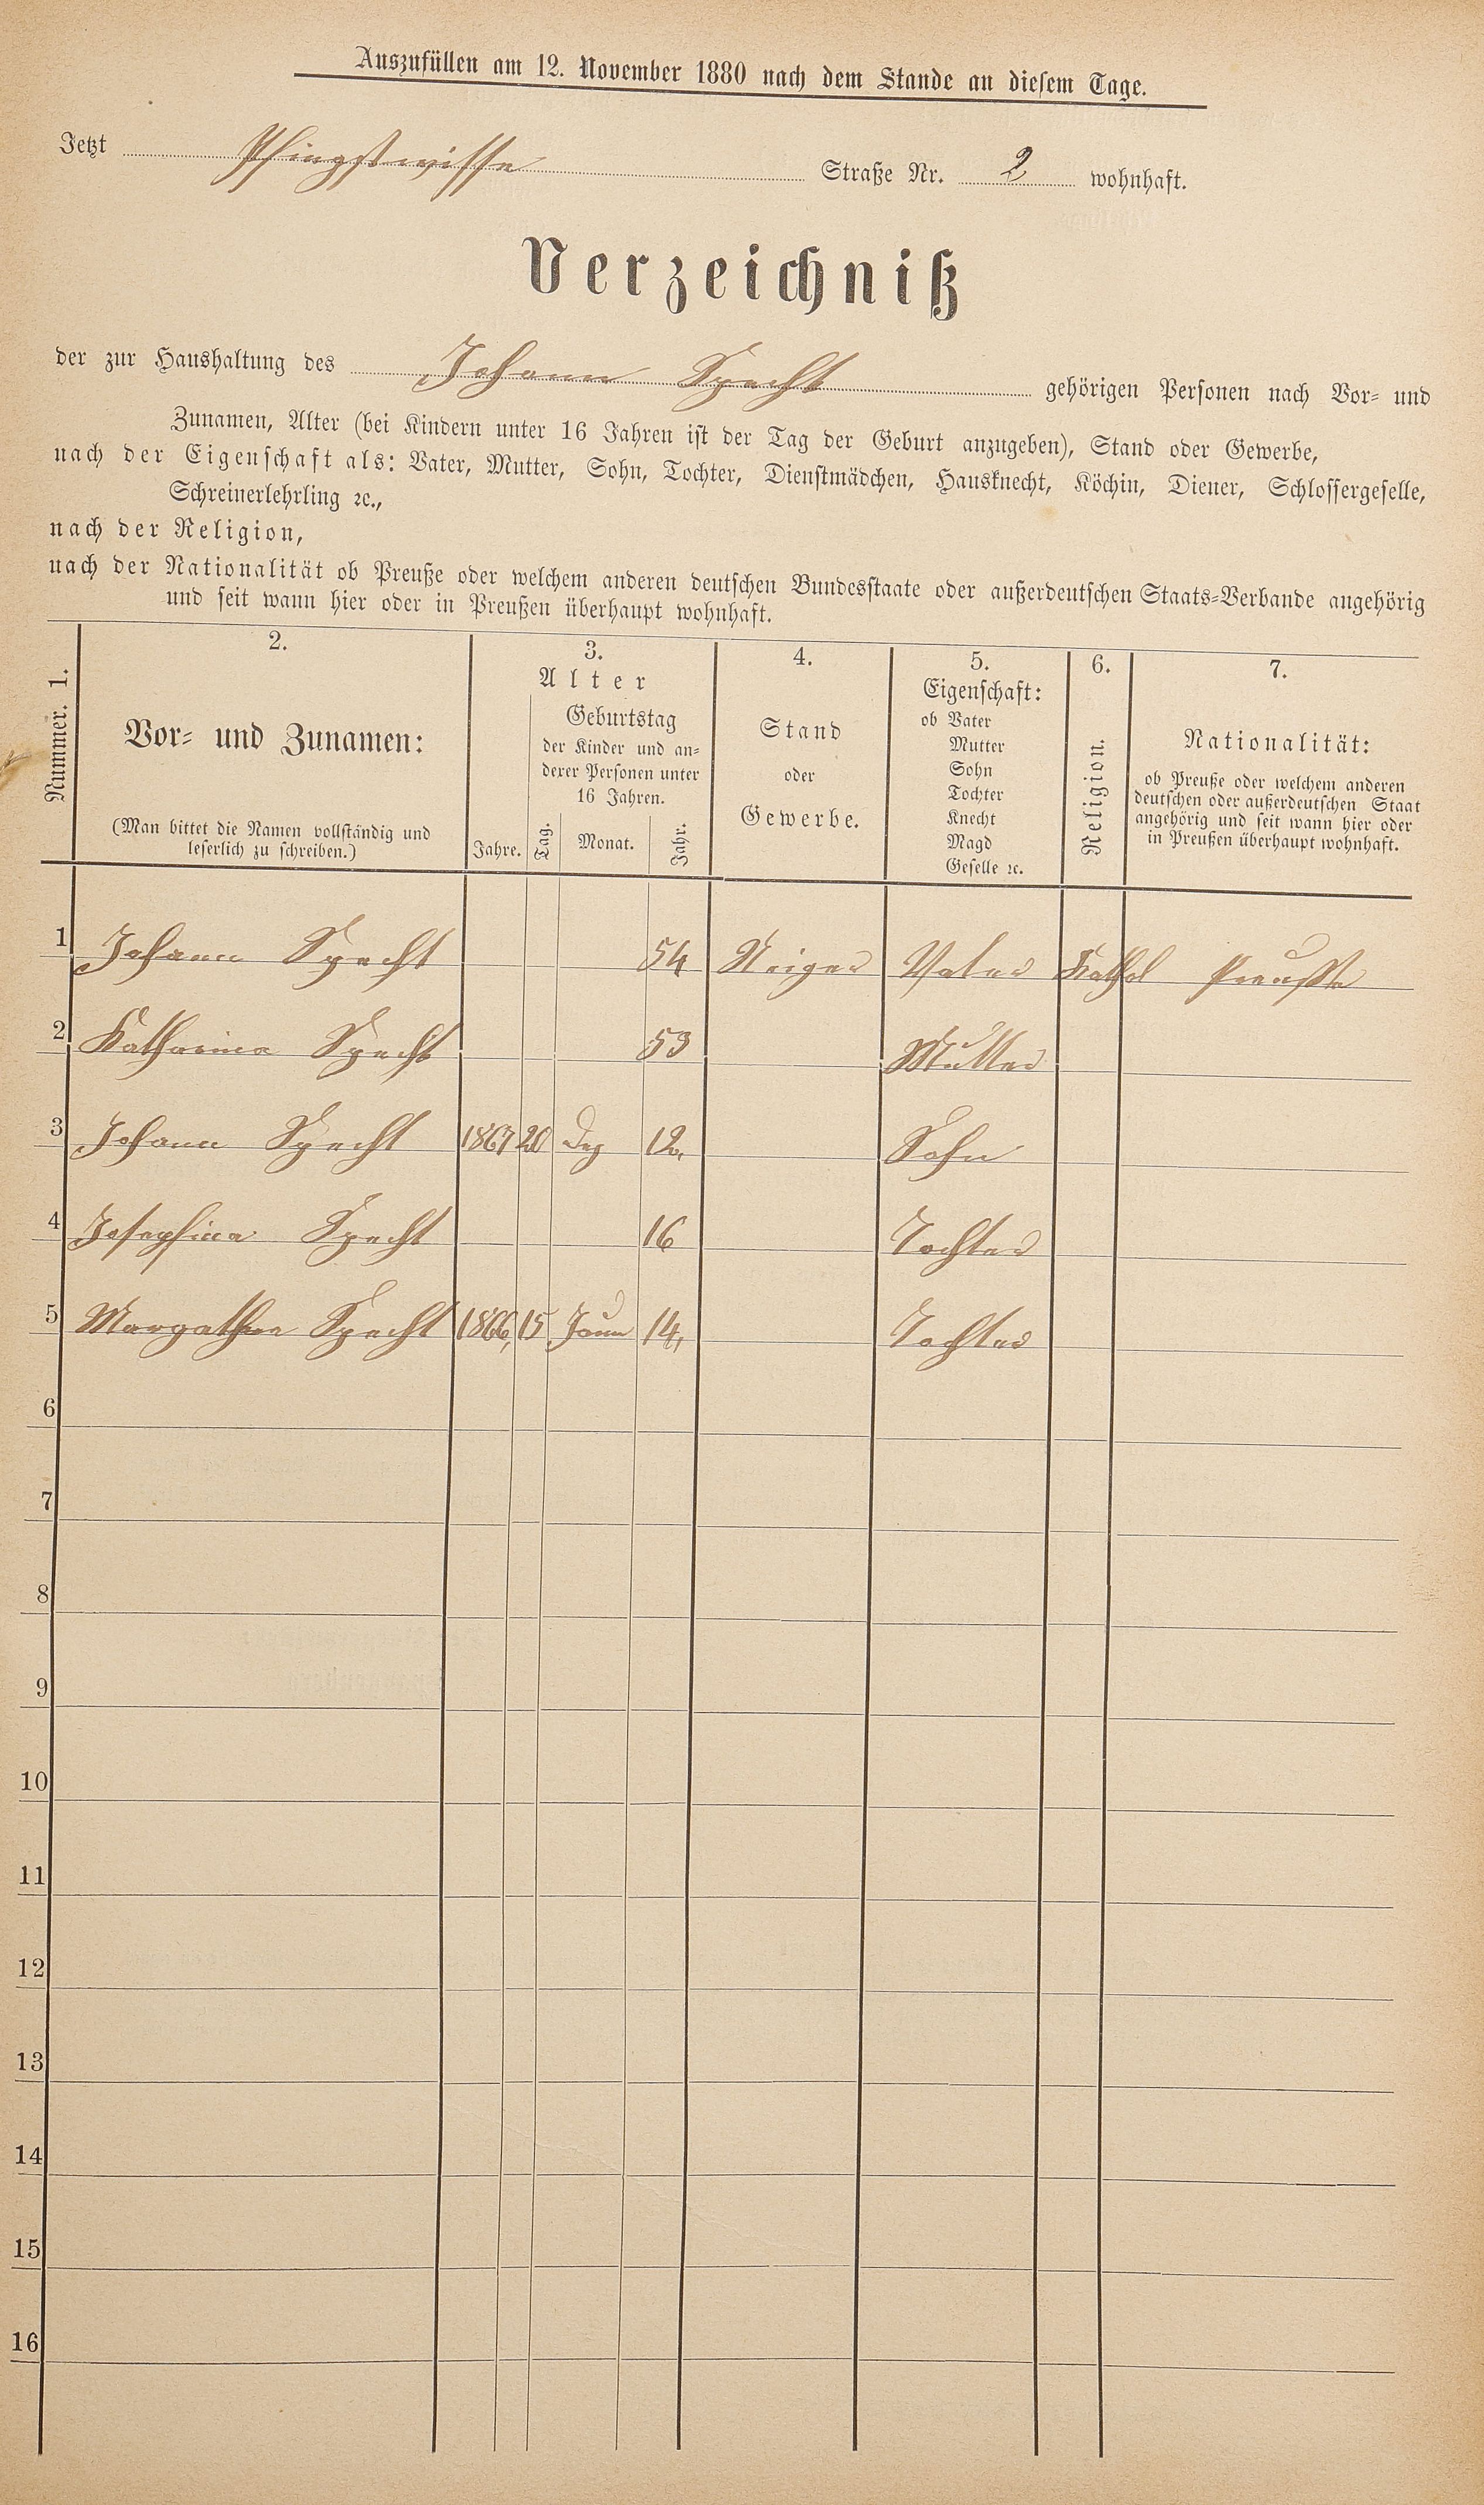 Auszufüllen am 12. November 1880 nach dem Stande an diesem Tage.
Jetzt Pfingstwisse Straße Nr. 2 wohnhaft.
Verzeichniß
der zur Haushaltung des Johann Specht gehörigen Personen nach Vor- und
Zunamen, Alter (bei Kindern unter 16 Jahren ist der Tag der Geburt anzugeben), Stand oder Gewerbe,
nach der Eigenschaft als: Vater, Mutter, Sohn, Tochter, Dienstmädchen, Hausknecht, Köchin, Diener, Schlossergeselle,
Schreinerlehrling ꝛc.,
nach der Religion,
nach der Nationalität ob Preuße oder welchem anderen deutschen Bundesstaate oder außerdeutschen Staats-Verbande angehörig
und seit wann hier oder in Preußen überhaupt wohnhaft.
Nummer. 1.
2.
Vor- und Zunamen:
(Man bittet die Namen vollständig und
leserlich zu schreiben.)
3.
Alter
Geburtstag
der Kinder und an-
derer Personen unter
16 Jahren.
Jahre. Tag. Monat. Jahr.
4.
Stand
oder
Gewerbe.
5.
Eigenschaft:
ob Vater
Mutter
Sohn
Tochter
Knecht
Magd
Geselle ꝛc.
6.
Religion.
7.
Nationalität:
ob Preuße oder welchem anderen
deutschen oder außerdeutschen Staat
angehörig und seit wann hier oder
in Preußen überhaupt wohnhaft.
1 Johann Specht 54 Vater Kathol Preuße
2 Katharina Specht 53 Mutter
3 Johann Specht 1867 20 Dez 12,
Sohn
4 Josephina Specht 16 Tochter
5 Margathea Specht 1866, 15 14, Tochter
6
7
8
9
10
11
12
13
14
15
16